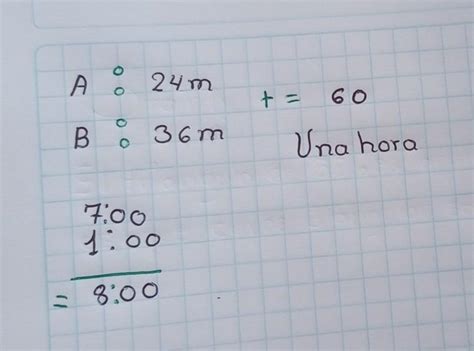 A : 24m
B : 36m
t = 60
Una hora
7:00
1:00
= 8:00